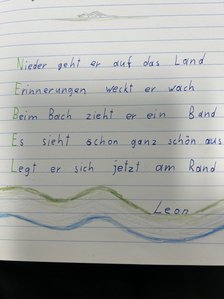 Nieder geht er auf das Land
Erinnerungen weckt er wach
Beim Bach zieht er ein Band
Es sieht schon ganz schön aus
Legt er sich jetzt am Rand
Leon